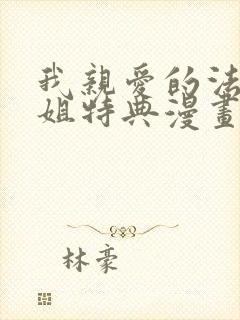 我親愛的法
姐特典漫畫
林豪